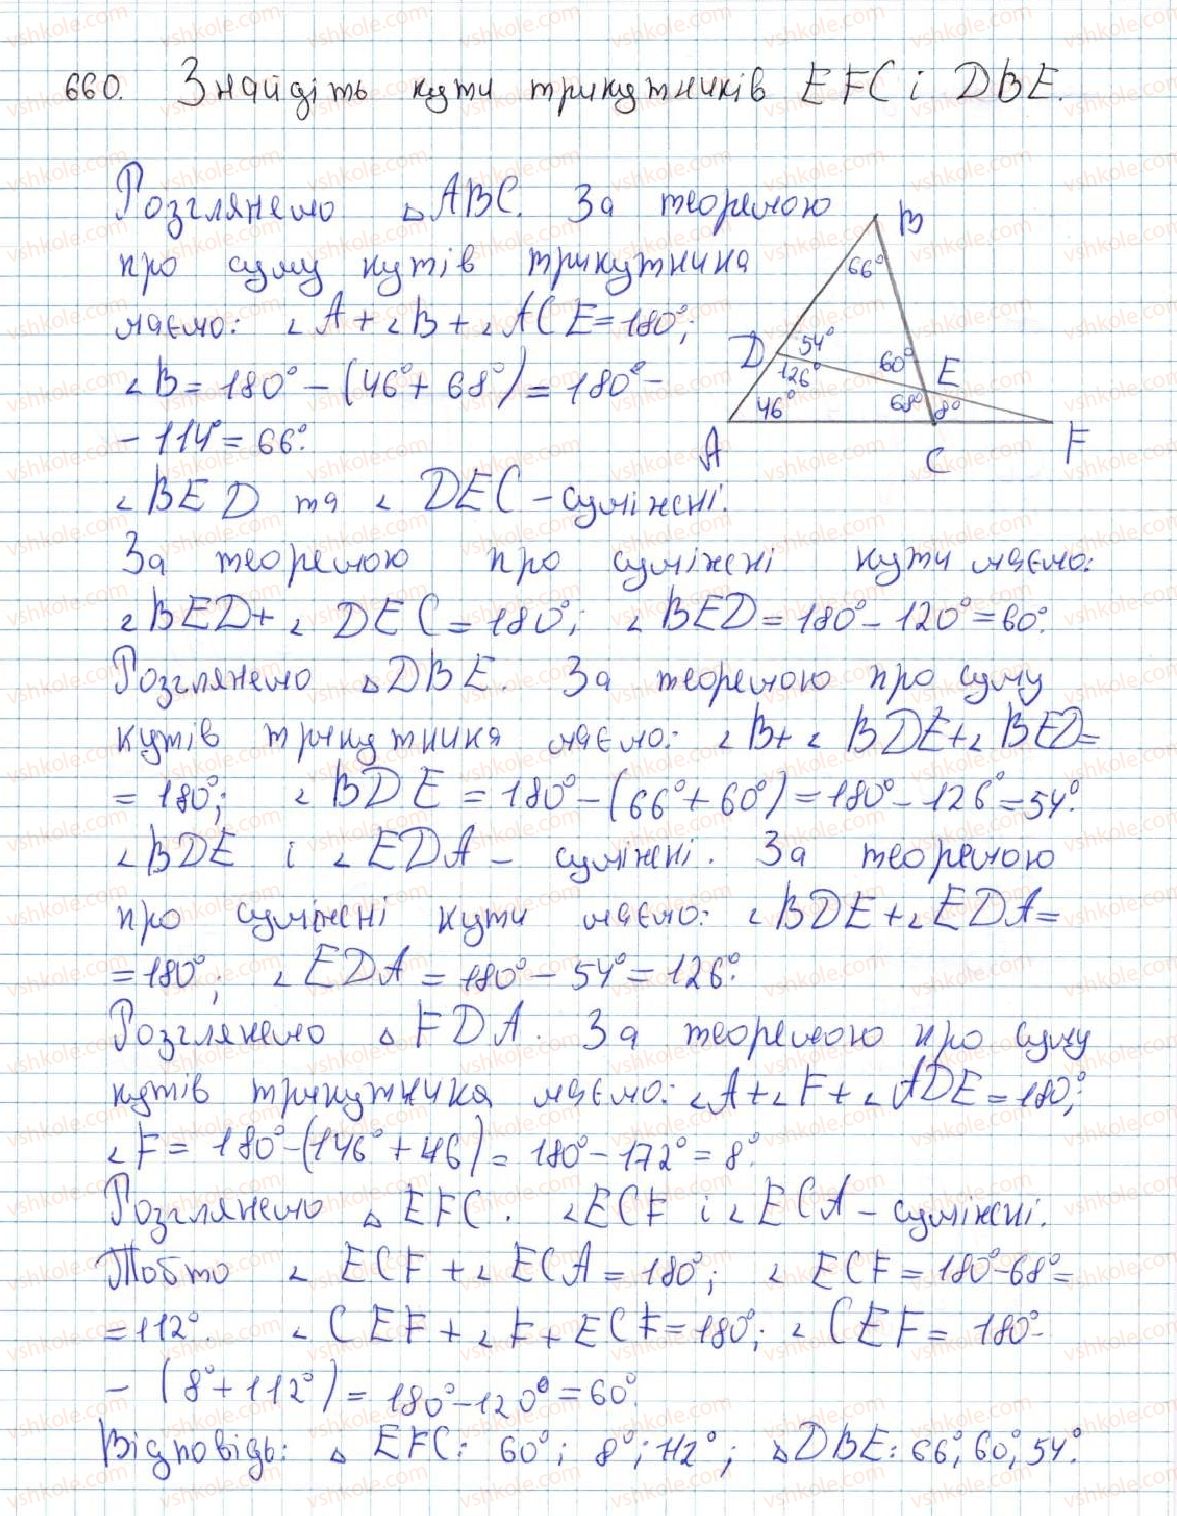 660. Знайдіть кути трикутників EFC і DBE.
Розглянемо △ABC. За теоремою
про суму кутів трикутника
маємо: ∠A+∠B+∠ACE=180°;
∠B=180°-(46°+68°)=180°-
-114°=66°.
B
66°
D
54°
126°
60°
E
46°
68°
8°
A
C
F
∠BED та ∠DEC-суміжні.
За теоремою про суміжні кути маємо:
∠BED+∠DEC=180°; ∠BED=180°-120°=60°.
Розглянемо △DBE. За теоремою про суму
кутів трикутника маємо: ∠B+∠BDE+∠BED=
=180°; ∠BDE=180°-(66°+60°)=180°-126°=54°.
∠BDE і ∠EDA- суміжні. За теоремою
про суміжні кути маємо: ∠BDE+∠EDA=
=180°; ∠EDA=180°-54°=126°.
Розглянемо △FDA. За теоремою про суму
кутів трикутника маємо: ∠A+∠F+∠ADE=180°;
∠F=180°-(146°+46)=180°-172°=8°.
Розглянемо △EFC. ∠ECF і ∠ECA-суміжні.
Тобто ∠ECF+∠ECA=180°; ∠ECF=180°-68°=
=112°. ∠CEF+∠F+ECF=180°; ∠CEF=180°-
-(8°+112°)=180°-120°=60°.
Відповідь: △EFC: 60°; 8°; 112°; △DBE: 66°; 60°; 54°.
vshkole.com